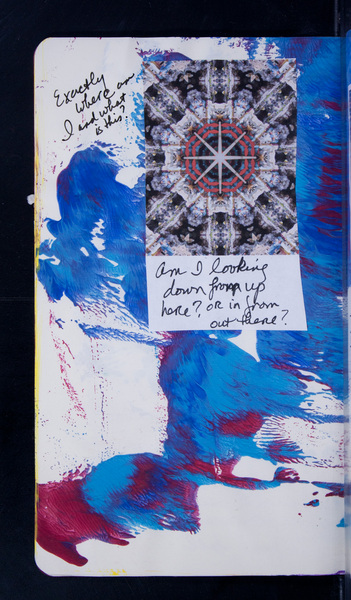 Exactly
where am
I and what
is this?
Am I looking
down from up
here? OR in from
out there?